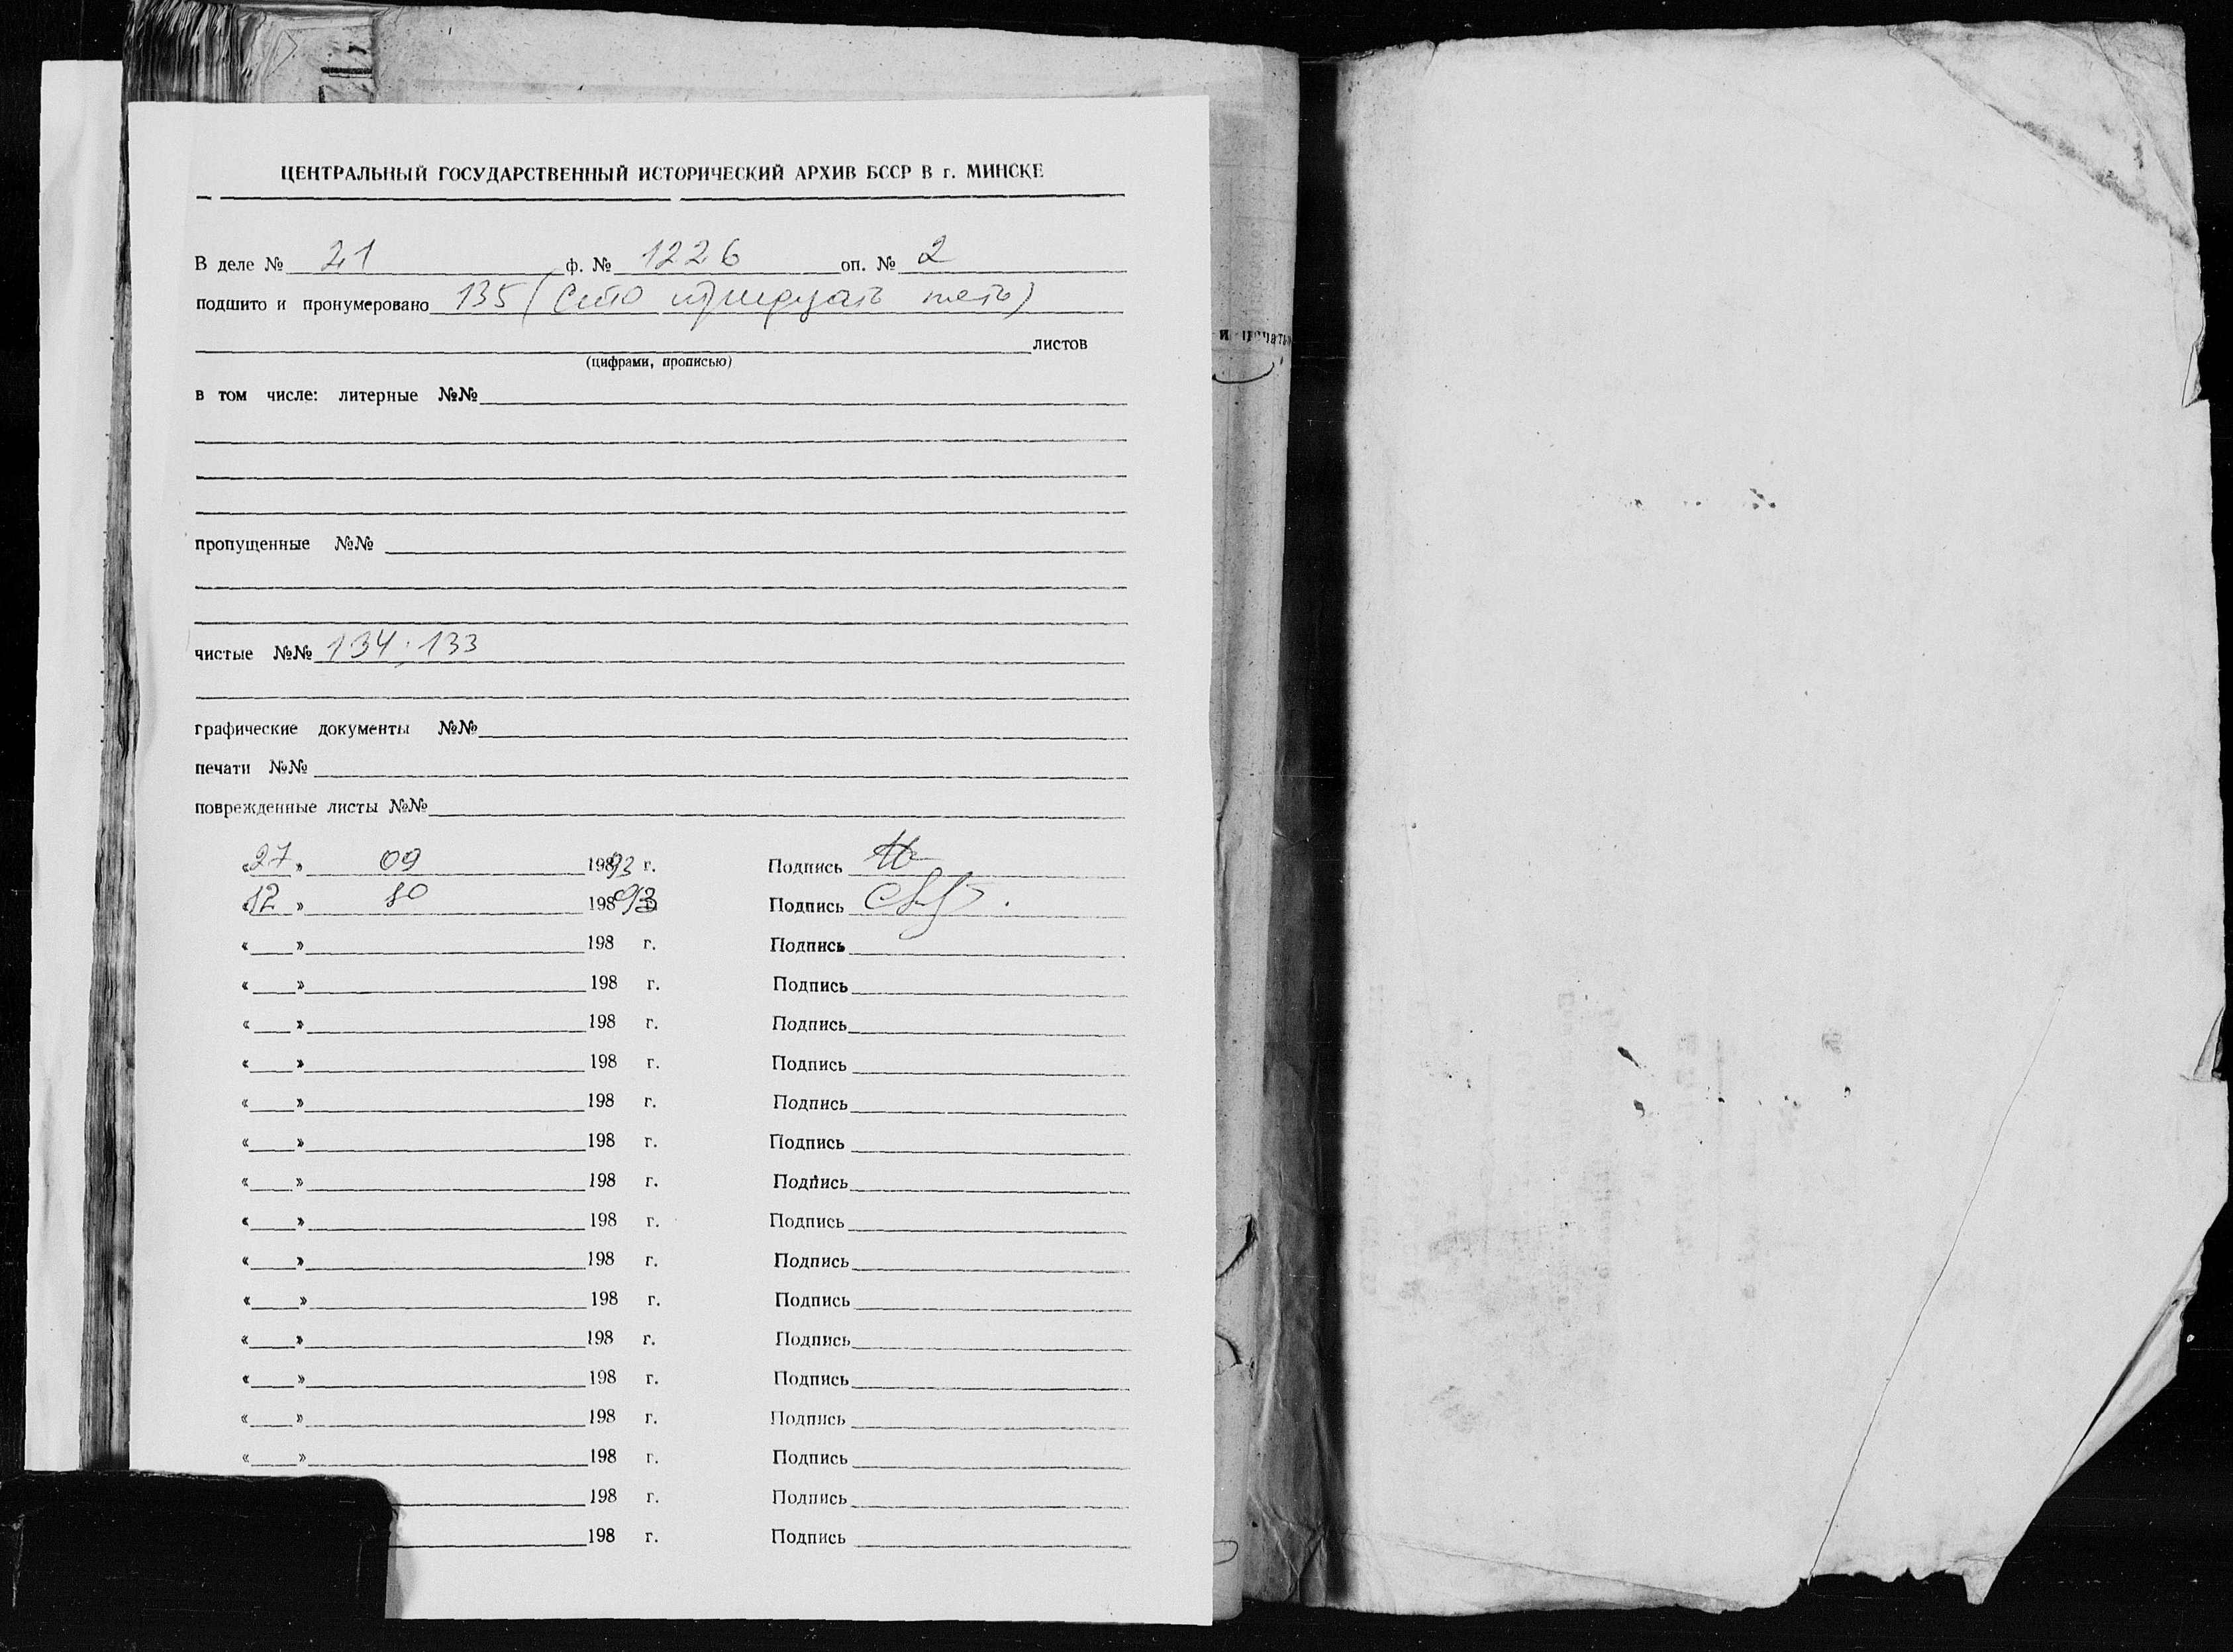 ЦЕНТРАЛЬНЫЙ ГОСУДАРСТВЕННЫЙ ИСТОРИЧЕСКИЙ АРХИВ БССР В г. МИНСКЕ
В деле № 21 ф. № 1226 оп. № 2
подшито и пронумеровано 135 (Сто тридцать пять)
листов
(цифрами, прописью)
в том числе: литерные №№
пропущенные №№
чистые №№ 134; 133
графические документы №№
печати №№
поврежденные листы №№
«27» 09 19893 г. Подпись
«12» 10 19893 г. Подпись
« » 198 г. Подпись
« » 198 г. Подпись
« » 198 г. Подпись
« » 198 г. Подпись
« » 198 г. Подпись
« » 198 г. Подпись
« » 198 г. Подпись
« » 198 г. Подпись
« » 198 г. Подпись
« » 198 г. Подпись
« » 198 г. Подпись
« » 198 г. Подпись
« » 198 г. Подпись
« » 198 г. Подпись
198 г. Подпись
198 г. Подпись
и печатью